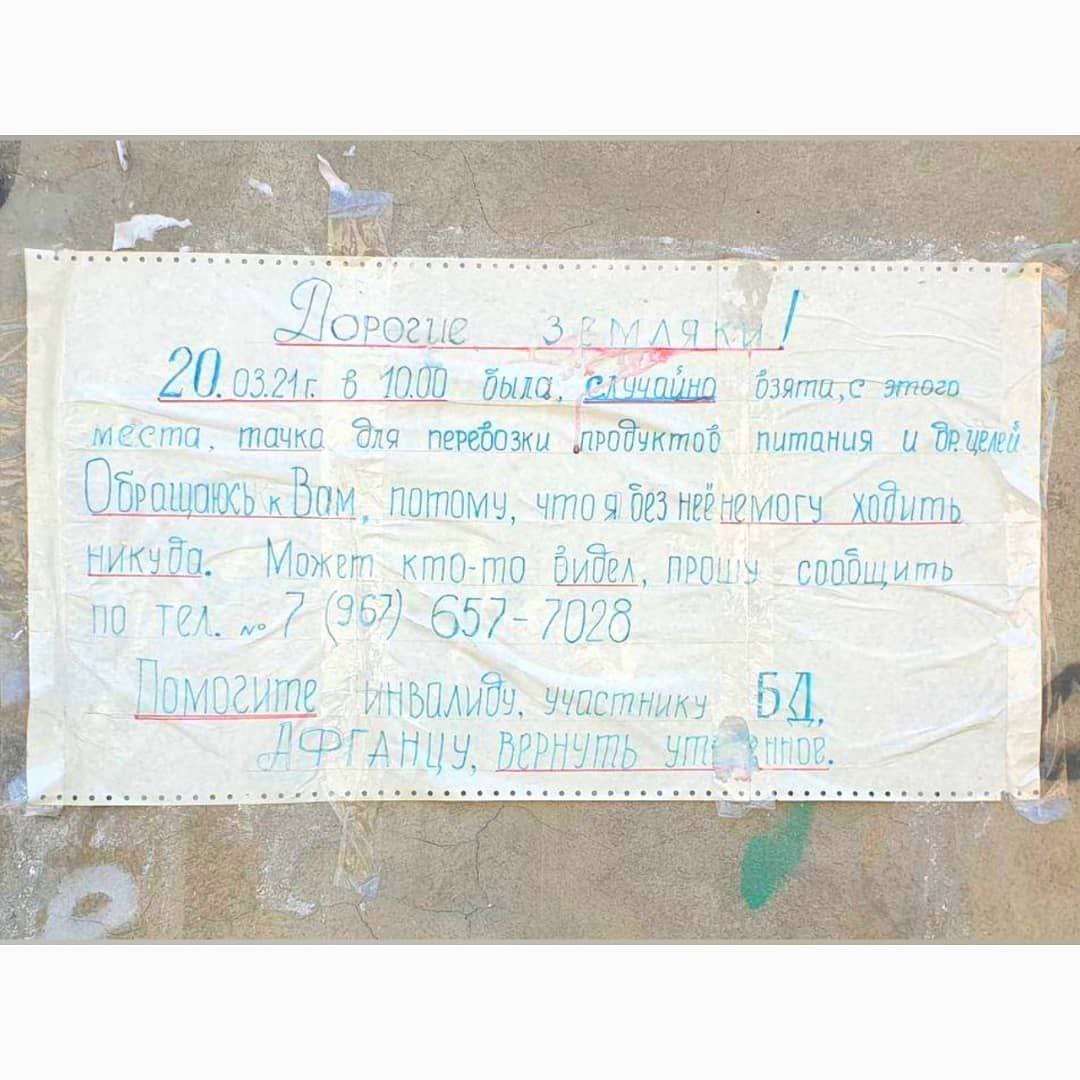 Дорогие земляки!
20.03.21г. в 10.00 была, случайно взята, с этого
места, тачка для перевозки продуктов питания и др. целей
Обращаюсь к Вам, потому, что я без неё немогу ходить
никуда. Может кто-то видел, прошу сообщить
по тел. № 7 (967) 657-7028
Помогите инвалиду, участнику БД,
АФГАНЦУ, вернуть